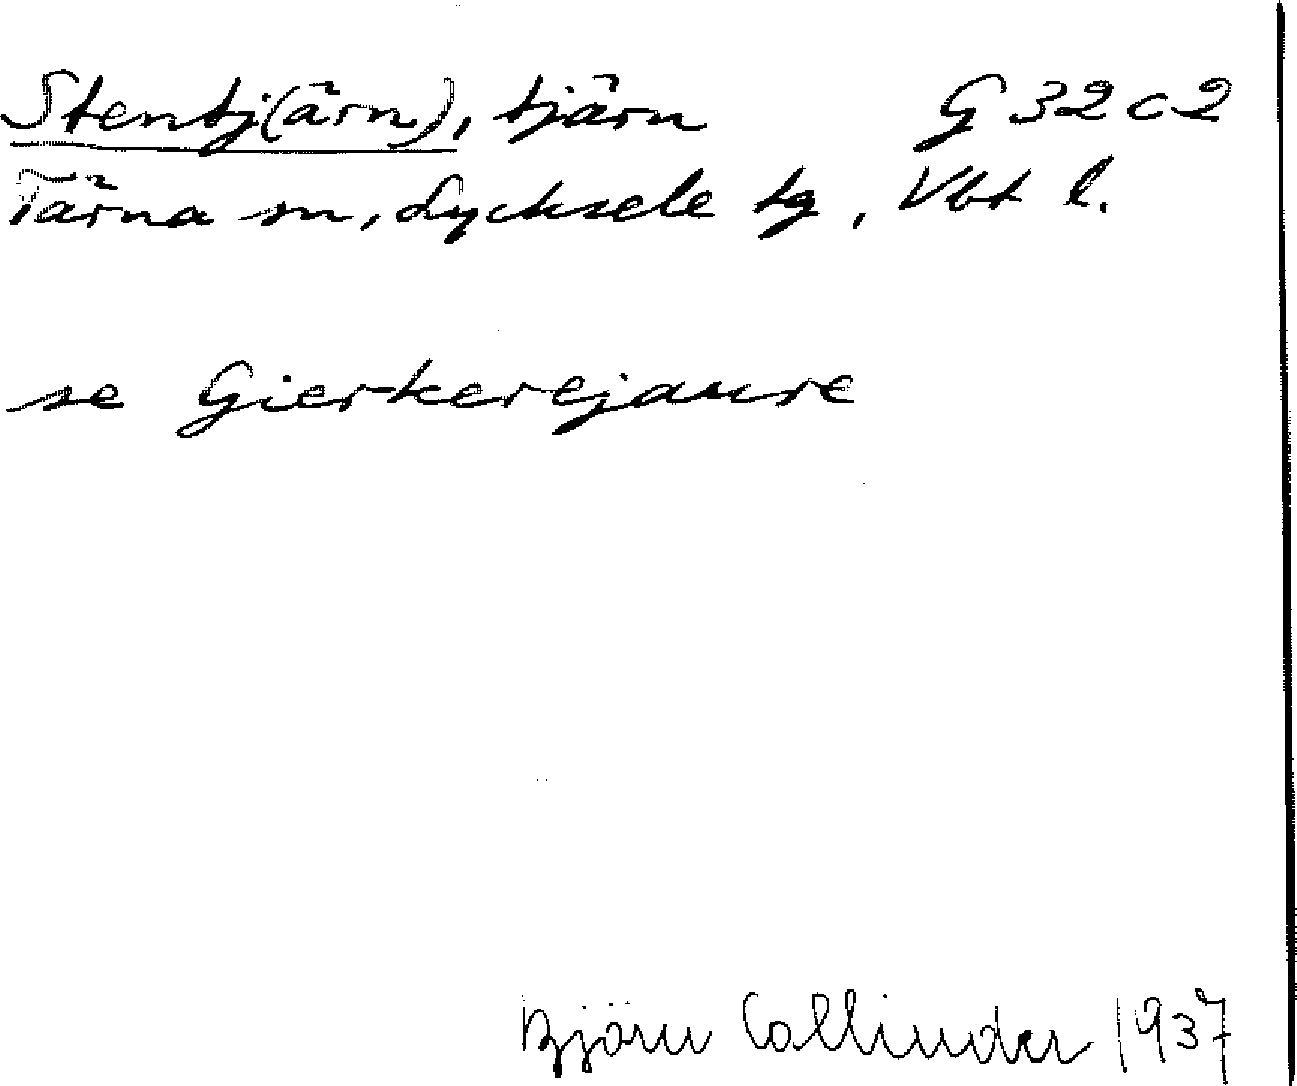 Stentj(ärn), tjärn G 32 c 2
Tärna sn, Lycksele lg, Vbt l.
se Gierkerejaure
Björn Collinder 1937